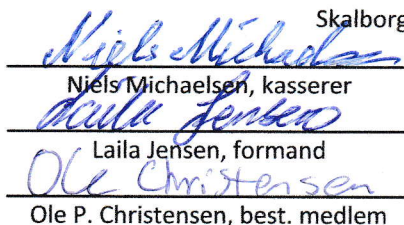 Skalborg
Niels Michaelsen
Niels Michaelsen, kasserer
Laila Jensen
Laila Jensen, formand
Ole Christensen
Ole P. Christensen, best. medlem